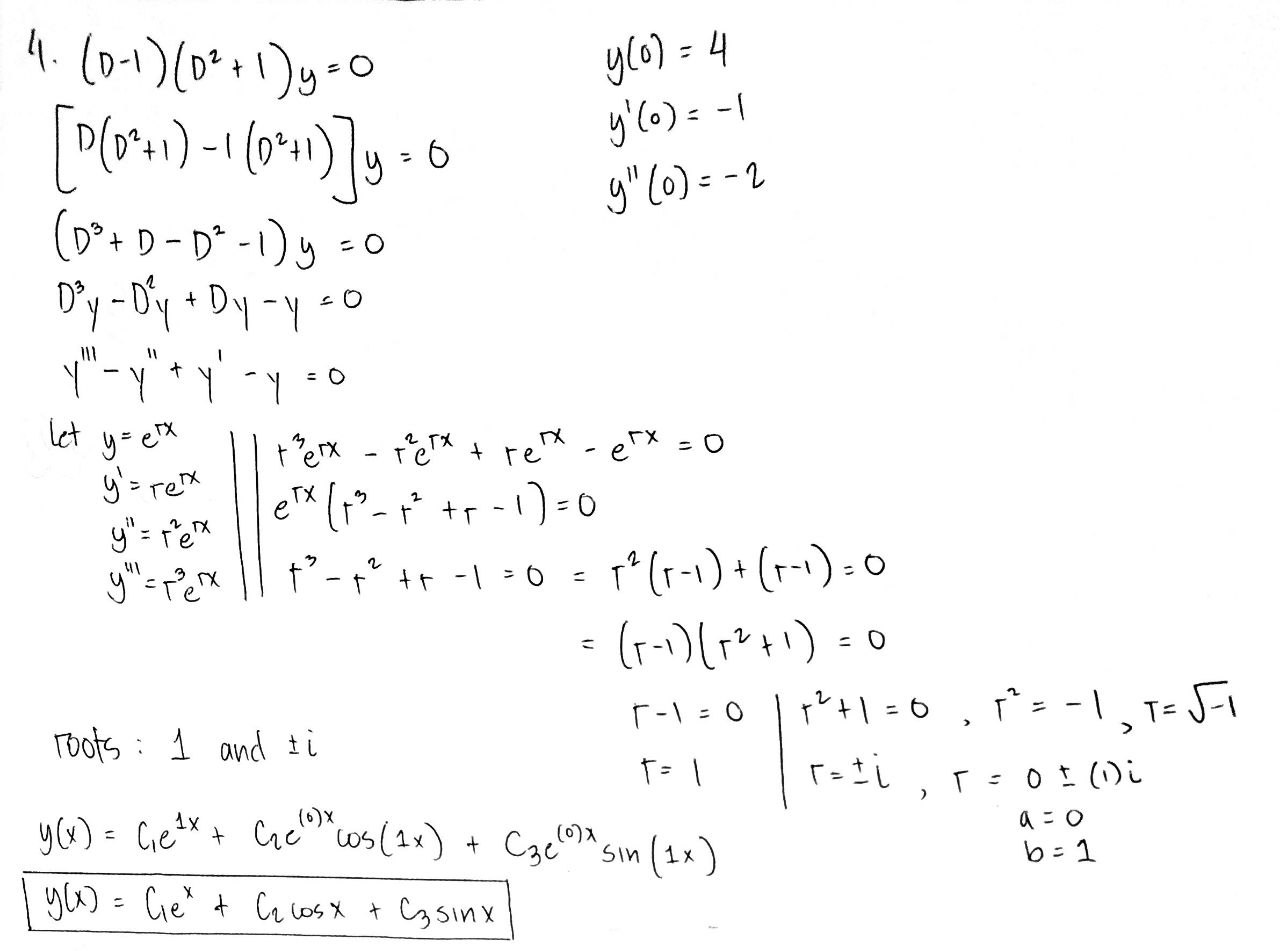 4. (D-1)(D²+1)y=0
y(0) = 4
[D(D²+1) -1(D²+1)]y = 0
y'(0) = -1
y''(0) = -2
(D³+D-D²-1)y = 0
D³y-D²y+Dy-y=0
y'''-y''+y'-y=0
let y=e^rx
y'=re^rx
y''=r²e^rx
y'''=r³e^rx
r³e^rx - r²e^rx + re^rx - e^rx = 0
e^rx(r³-r²+r-1)=0
r³-r²+r-1=0 = r²(r-1)+(r-1)=0
= (r-1)(r²+1) = 0
r-1=0 | r²+1=0 , r²=-1, r=√-1
r=1 | r=±i , r = 0±(1)i
a=0
b=1
roots: 1 and ±i
y(x) = C₁e^1x + C₂e^(0)x cos(1x) + C₃e^(0)x sin(1x)
y(x) = C₁e^x + C₂cosx + C₃sinx